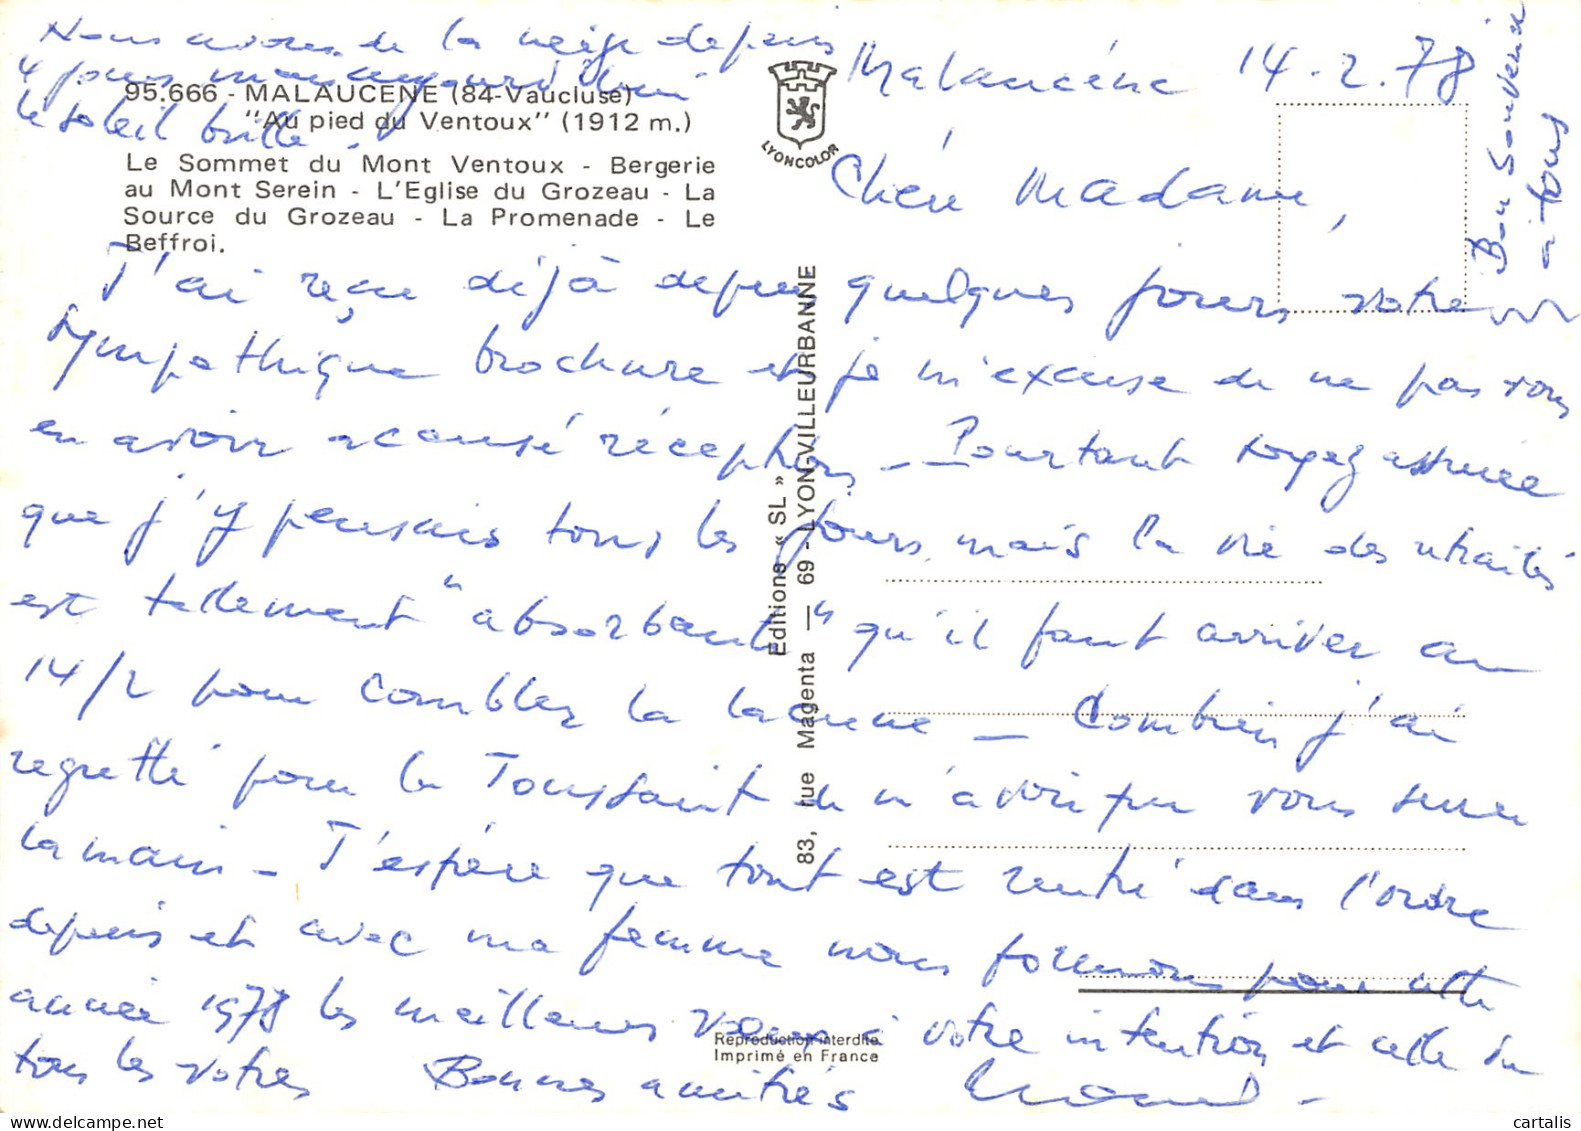 Nous avons de la neige depuis
4 jours mais aujourd'hui
le soleil brille.
95.666 - MALAUCENE (84-Vaucluse)
"Au pied du Ventoux" (1912 m.)
Le Sommet du Mont Ventoux - Bergerie
au Mont Serein - L'Eglise du Grozeau - La
Source du Grozeau - La Promenade - Le
Beffroi.
LYONCOLOR
Malaucène 14.2.78
Chère Madame,
J'ai reçu déjà depuis quelques jours votre
sympathique brochure et je m'excuse de ne pas vous
en avoir accusé réception - Pourtant soyez assurée
que j'y pensais tous les jours, mais la vie des retraités
est tellement "absorbante" qu'il faut arriver au
14/2 pour combler la lacune - Combien j'ai
regretté pour la Toussaint de n'avoir pu vous serrer
la main - J'espère que tout est rentré dans l'ordre
depuis et avec ma femme nous formons pour cette
année 1978 les meilleurs vœux à votre intention et celle de
tous les votres Bonnes amitiés
Bon Souvenir
à tous
Editions « SL »
83, rue Magenta — 69 - LYON-VILLEURBANNE
Reproduction interdite
Imprimé en France
cartalis